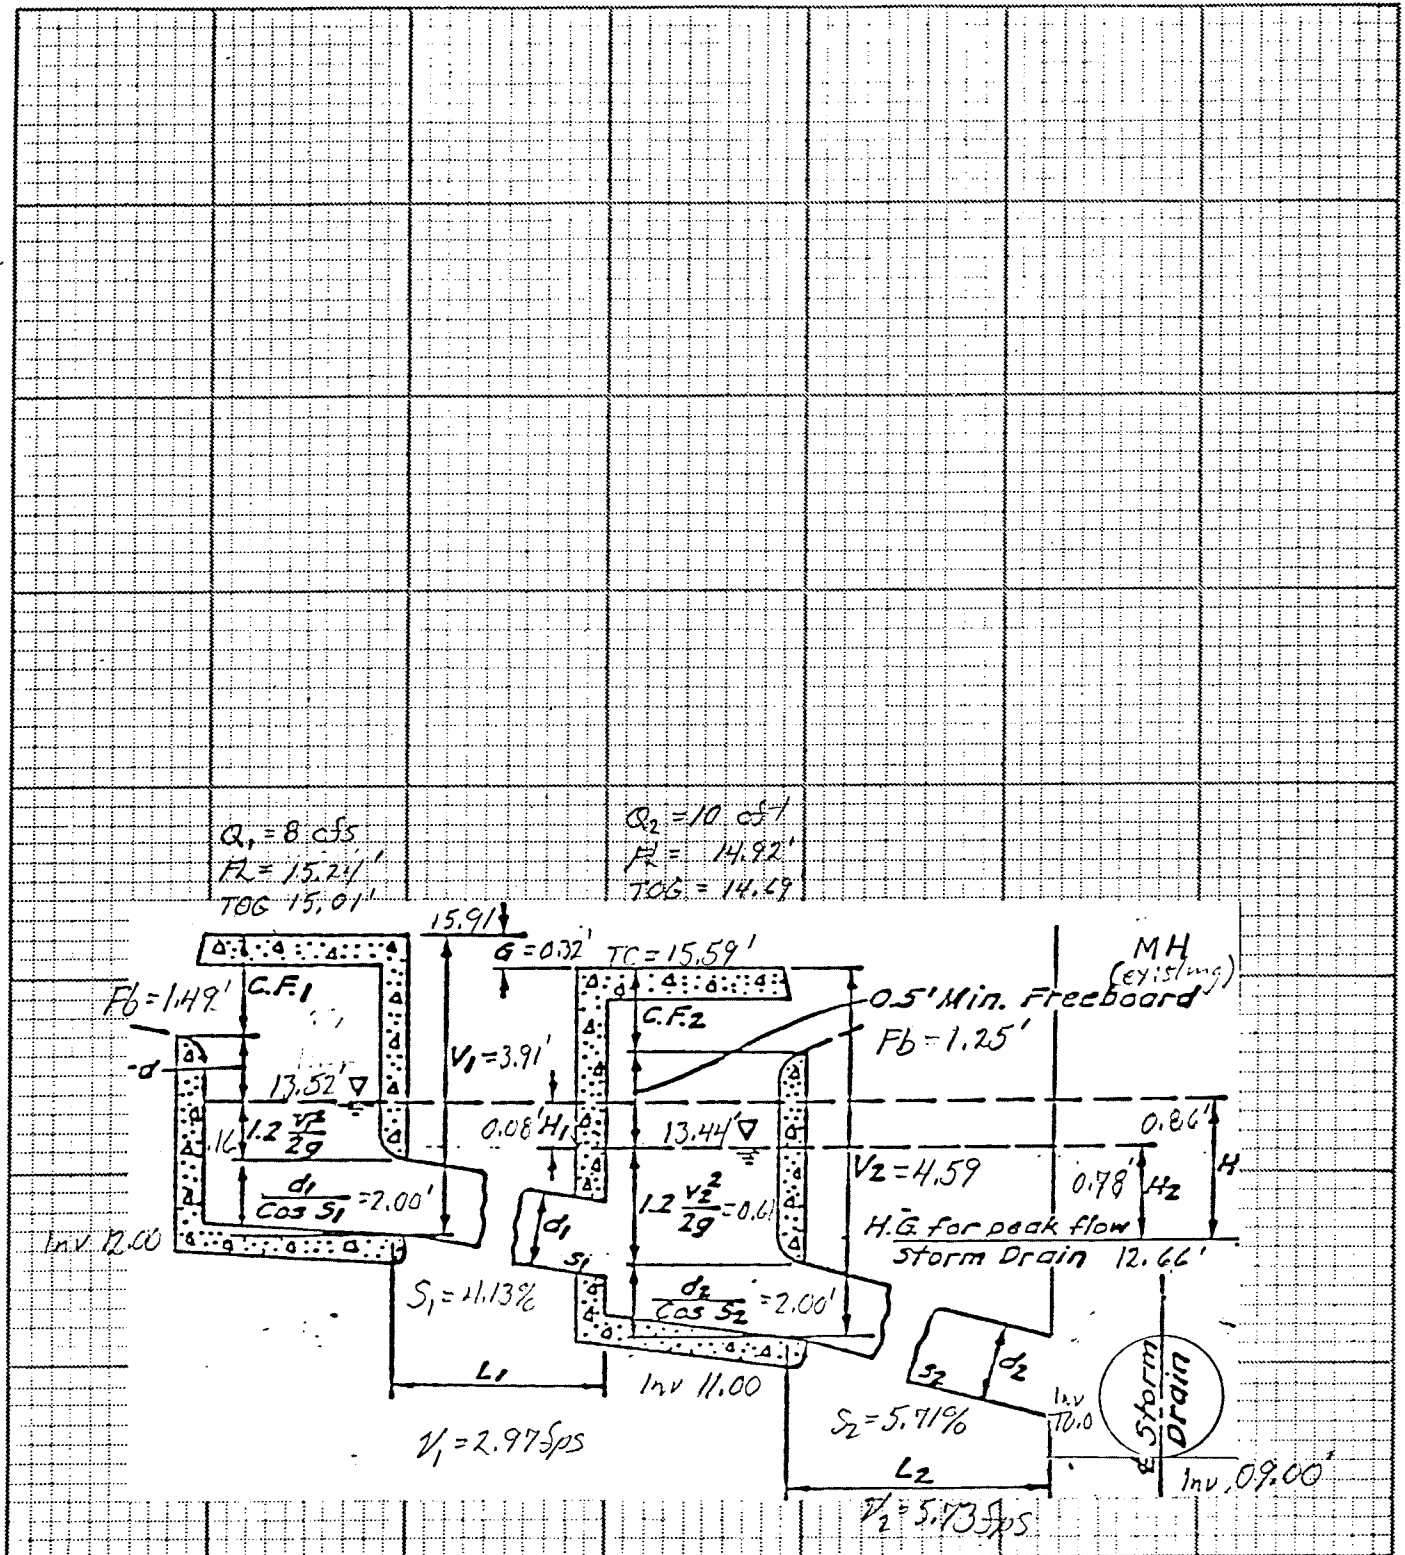 Q₁ = 8 cfs
FL = 15.24'
TOG 15.01'
Q₂ = 10 cfs
FL = 14.92'
TOG = 14.69'
15.91
G = 0.32'
TC = 15.59'
MH
(existing)
Fb = 1.49'
C.F.1
C.F.2
0.5' Min. Freeboard
Fb = 1.25'
d
V₁ = 3.91'
13.52'
0.86'
.16
1.2 v₁²/2g
0.08' H₁
13.44'
V₂ = 4.59
0.78' H₂
H
d₁/Cos S₁ = 2.00'
d₁
1.2 v₂²/2g = 0.61
H.G. for peak flow
Storm Drain 12.66'
Inv 12.00
S₁
S₁ = 4.13%
d₂/Cos S₂ = 2.00'
S₂
d₂
L₁
Inv 11.00
S₂ = 5.71%
Inv
10.0
℄ Storm
Drain
V₁ = 2.97 fps
L₂
Inv. 09.00'
V₂ = 5.73 fps